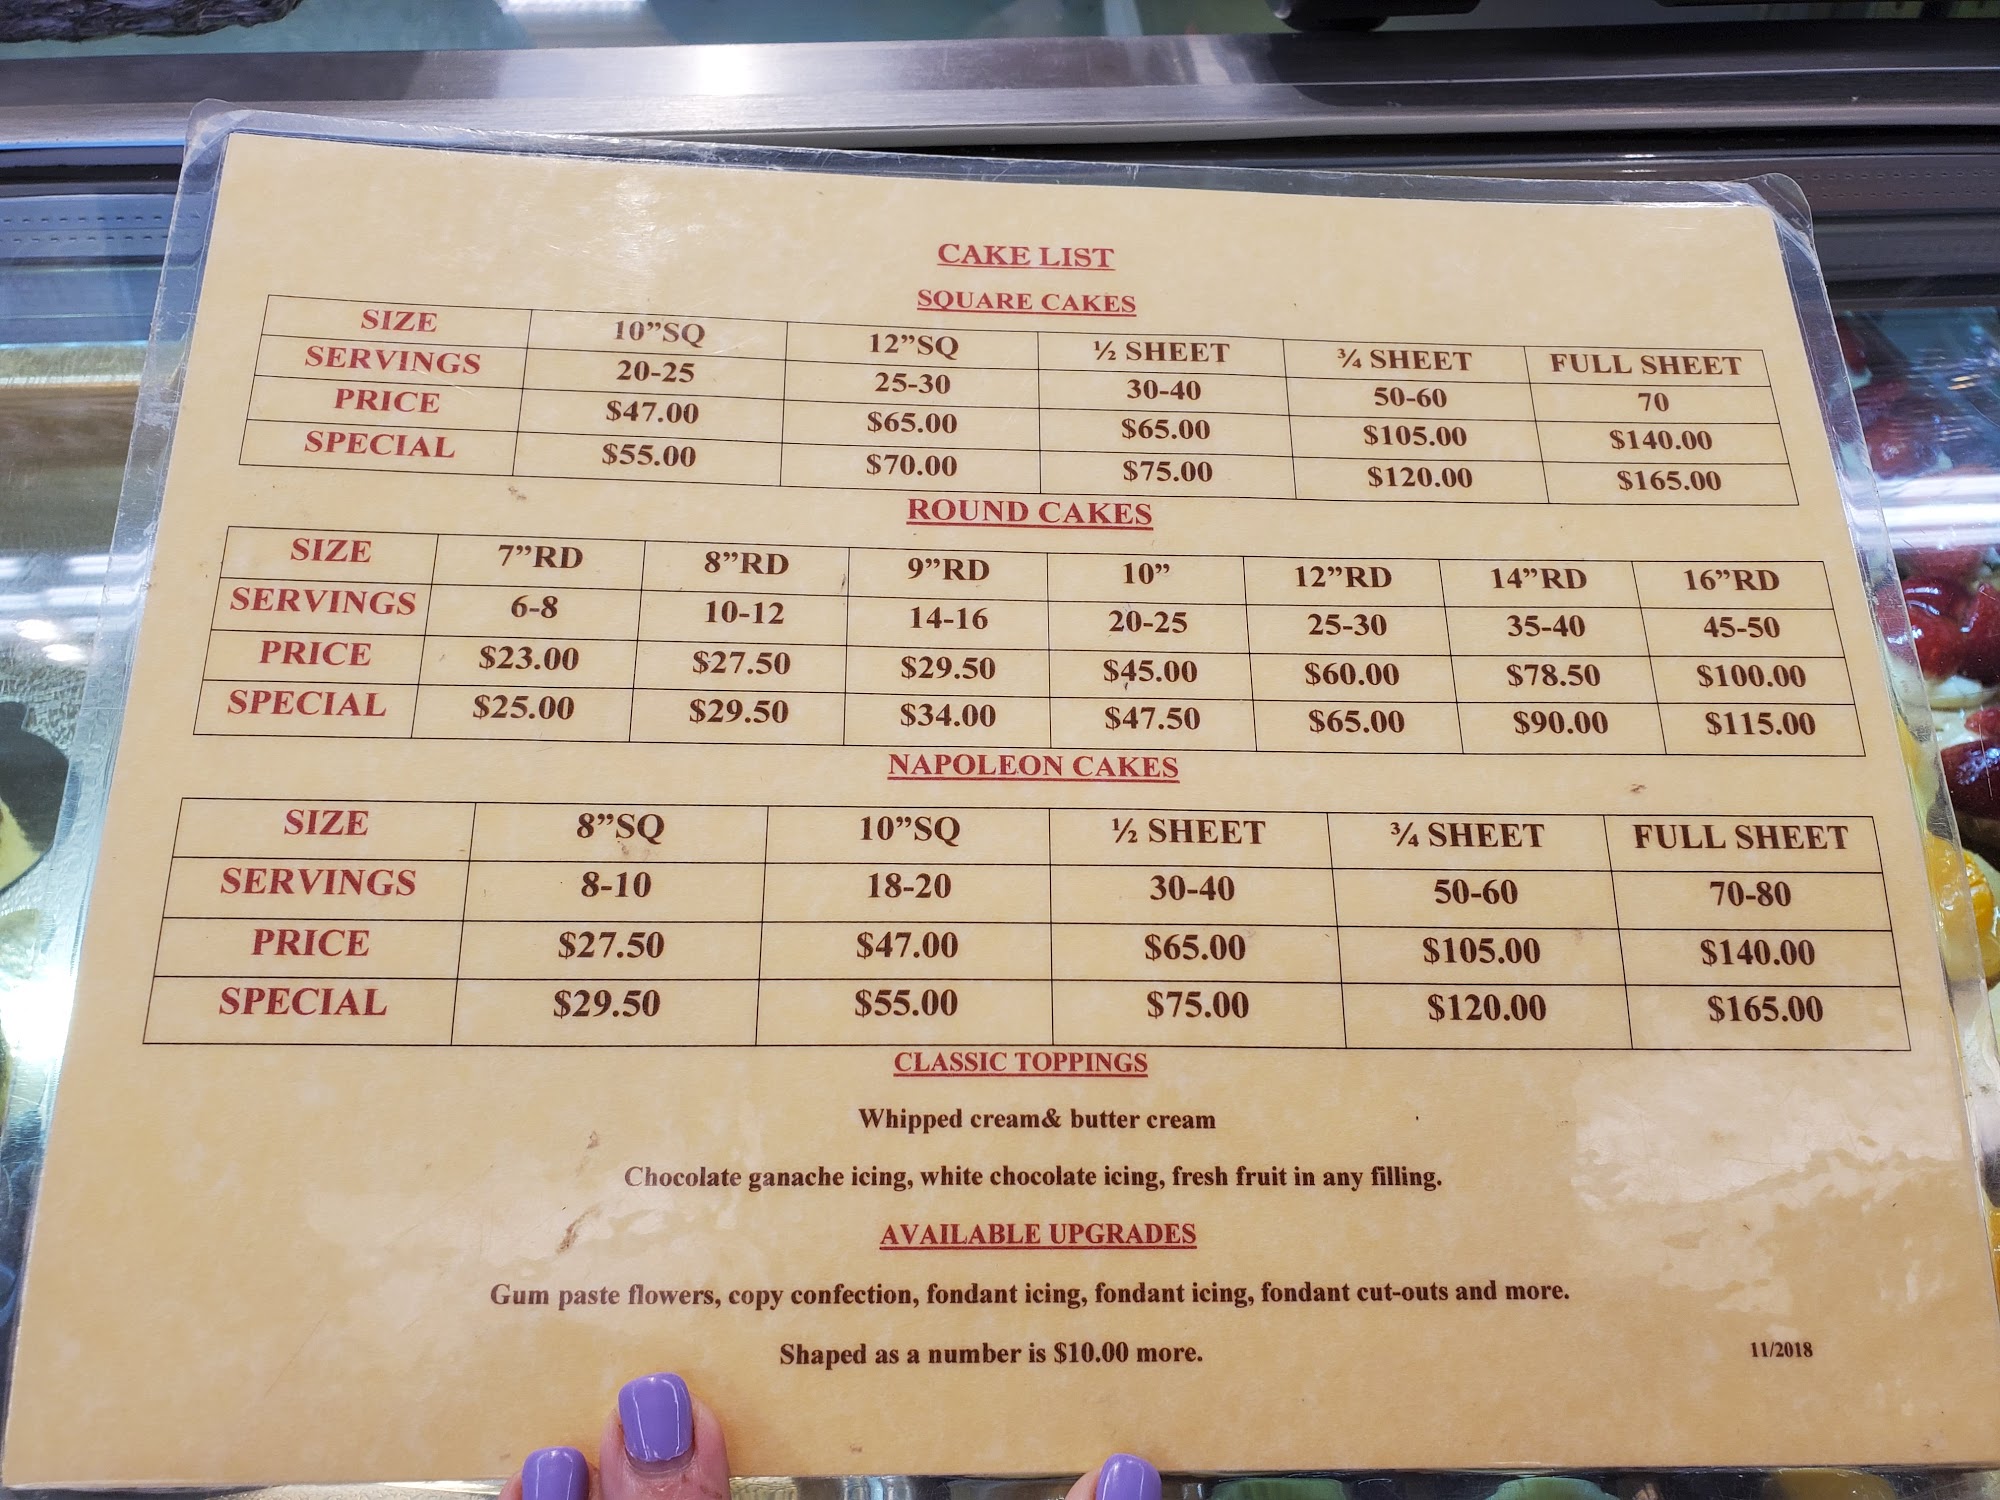 CAKE LIST
SQUARE CAKES
SIZE 10”SQ 12”SQ ½ SHEET ¾ SHEET FULL SHEET
SERVINGS 20-25 25-30 30-40 50-60 70
PRICE $47.00 $65.00 $65.00 $105.00 $140.00
SPECIAL $55.00 $70.00 $75.00 $120.00 $165.00
ROUND CAKES
SIZE 7”RD 8”RD 9”RD 10” 12”RD 14”RD 16”RD
SERVINGS 6-8 10-12 14-16 20-25 25-30 35-40 45-50
PRICE $23.00 $27.50 $29.50 $45.00 $60.00 $78.50 $100.00
SPECIAL $25.00 $29.50 $34.00 $47.50 $65.00 $90.00 $115.00
NAPOLEON CAKES
SIZE 8”SQ 10”SQ ½ SHEET ¾ SHEET FULL SHEET
SERVINGS 8-10 18-20 30-40 50-60 70-80
PRICE $27.50 $47.00 $65.00 $105.00 $140.00
SPECIAL $29.50 $55.00 $75.00 $120.00 $165.00
CLASSIC TOPPINGS
Whipped cream& butter cream
Chocolate ganache icing, white chocolate icing, fresh fruit in any filling.
AVAILABLE UPGRADES
Gum paste flowers, copy confection, fondant icing, fondant icing, fondant cut-outs and more.
Shaped as a number is $10.00 more.
11/2018